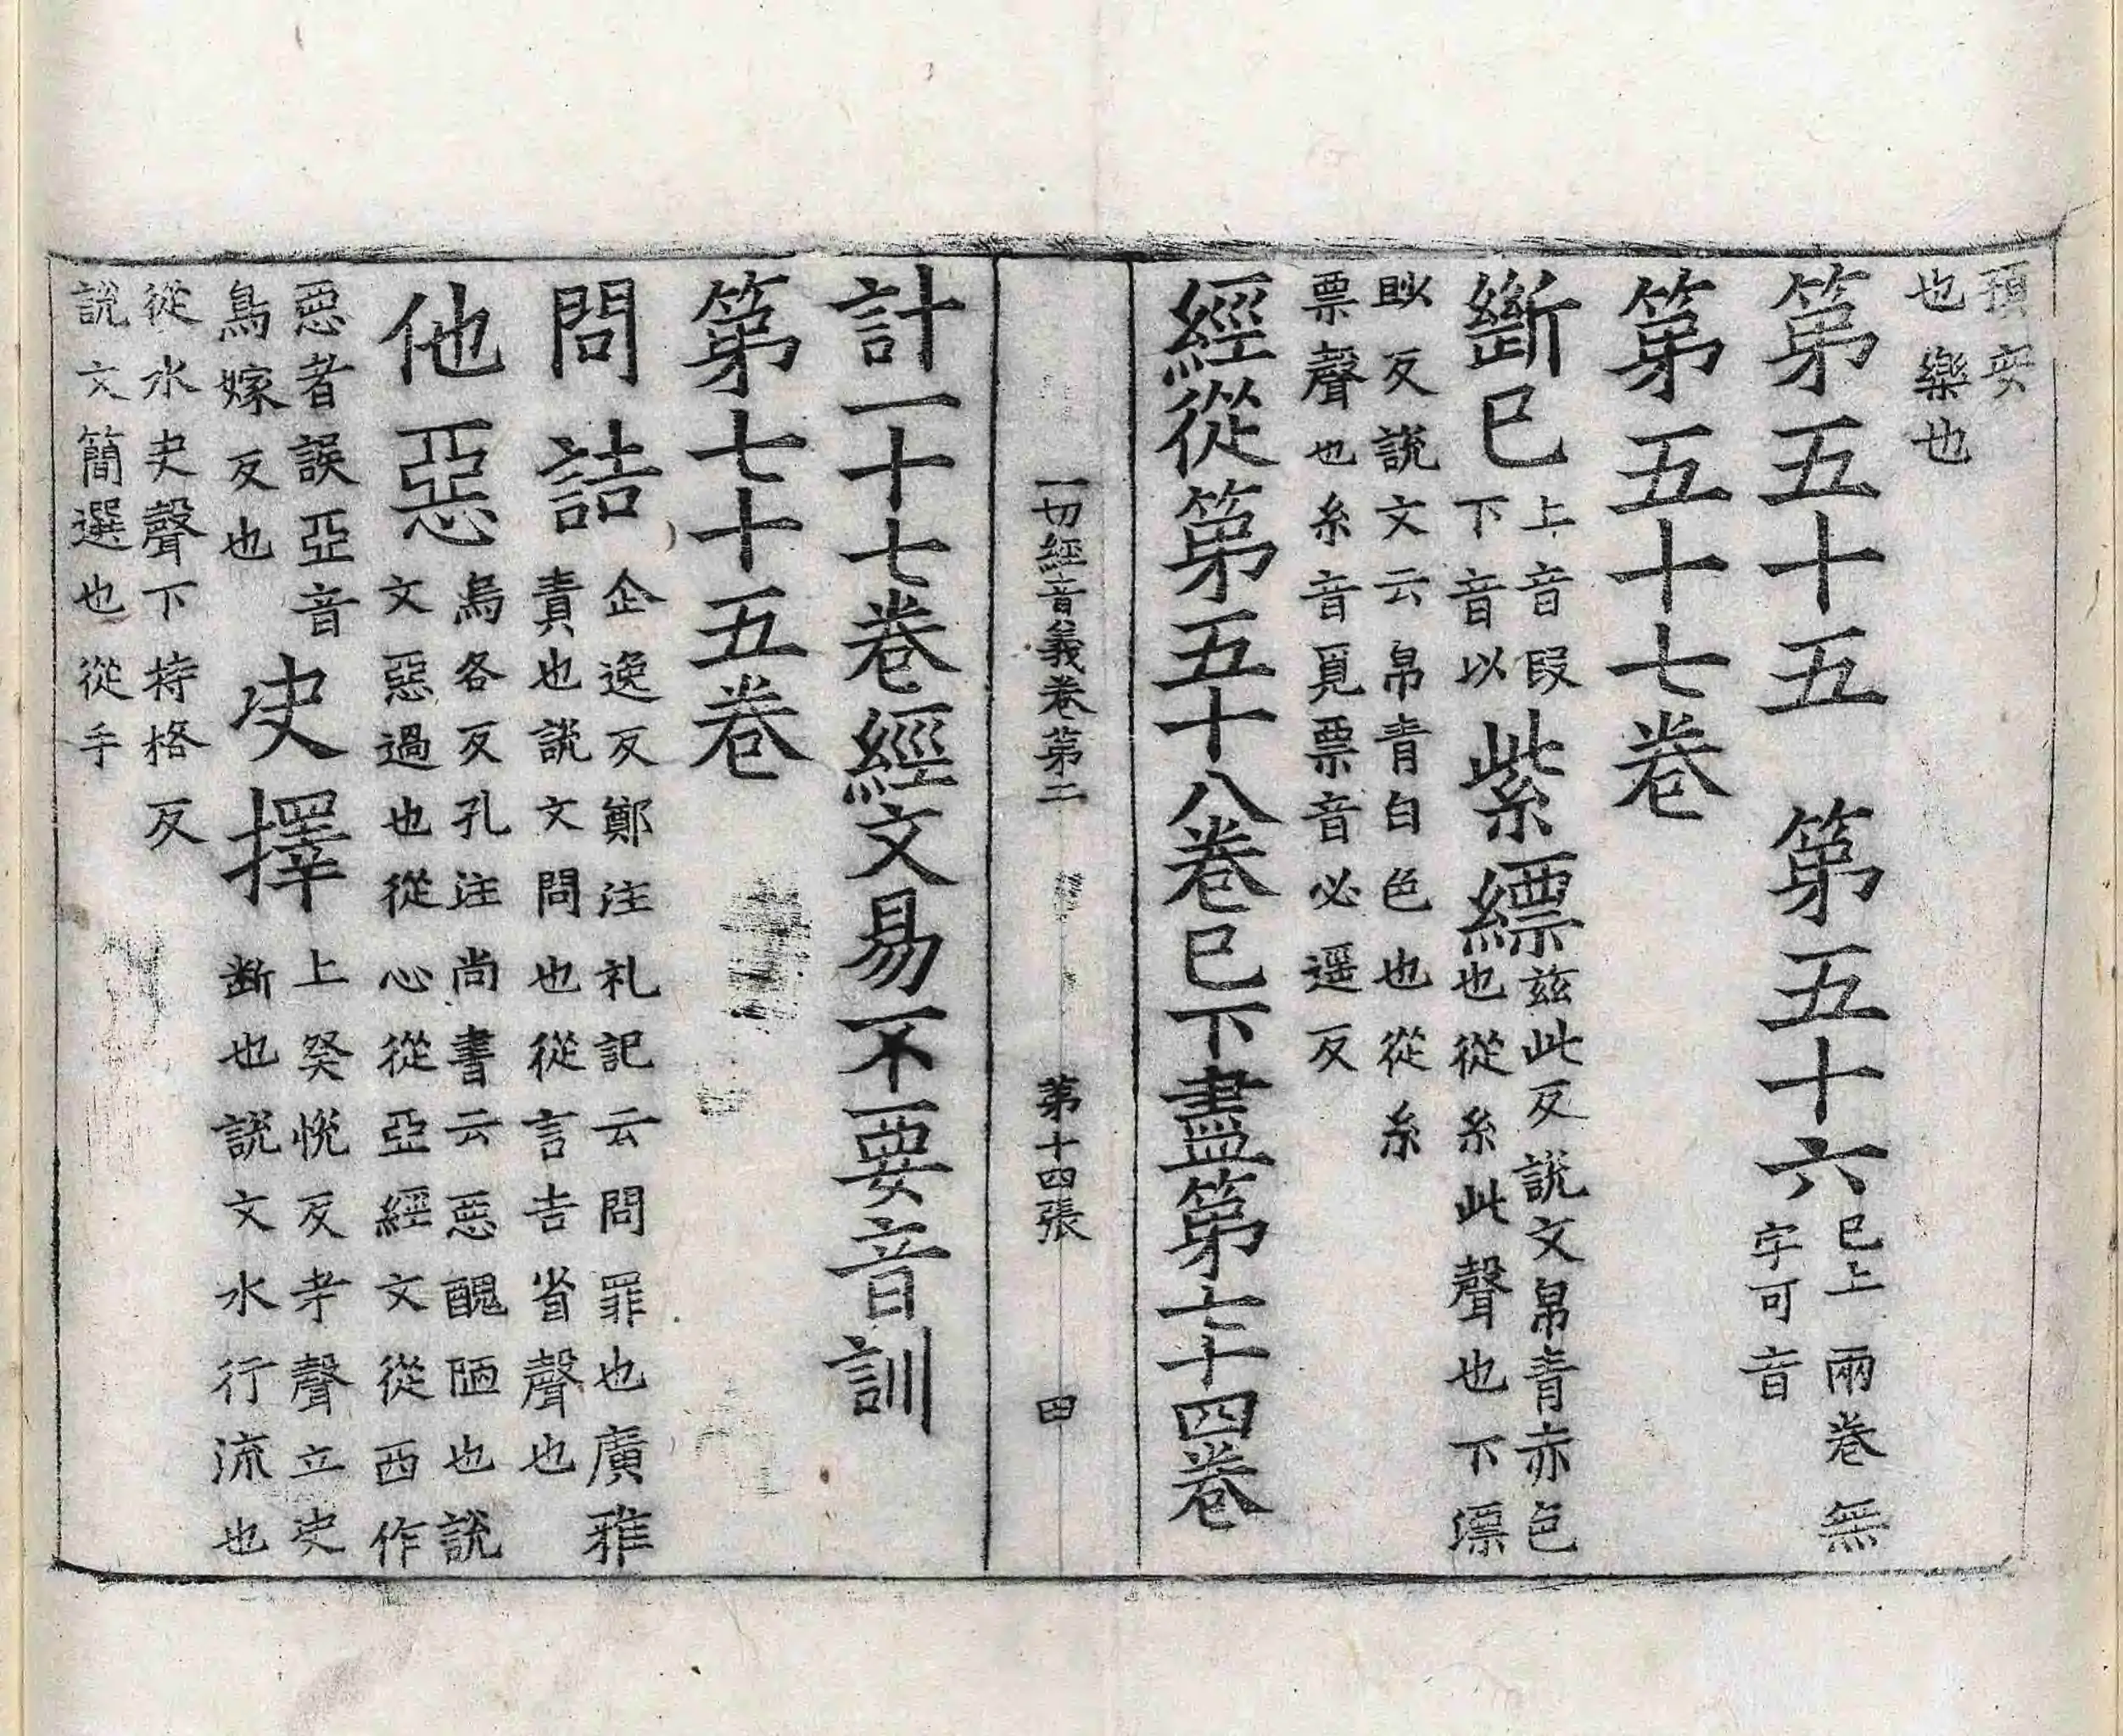 預安
也樂也
第五十五　第五十六
已上兩卷無
字可音
第五十七卷
斷已
上音段
下音以
紫縹
茲此反說文帛青赤色
也從糸此聲也下漂
眇反說文云帛青白色也從糸
票聲也糸音覓票音必遥反
經從第五十八卷已下盡第七十四卷
一切經音義卷第二　第十四張　四
計一十七卷經文易不要音訓
第七十五卷
問詰
企逸反鄭注礼記云問罪也廣雅
責也說文問也從言吉省聲也
他惡
烏各反孔注尚書云惡醜陋也說
文惡過也從心從亞經文從西作
惡者誤亞音
鳥嫁反也
决擇
上癸悅反聲立夬
断也說文水行流也
從水夬聲下持格反
說文簡選也從手